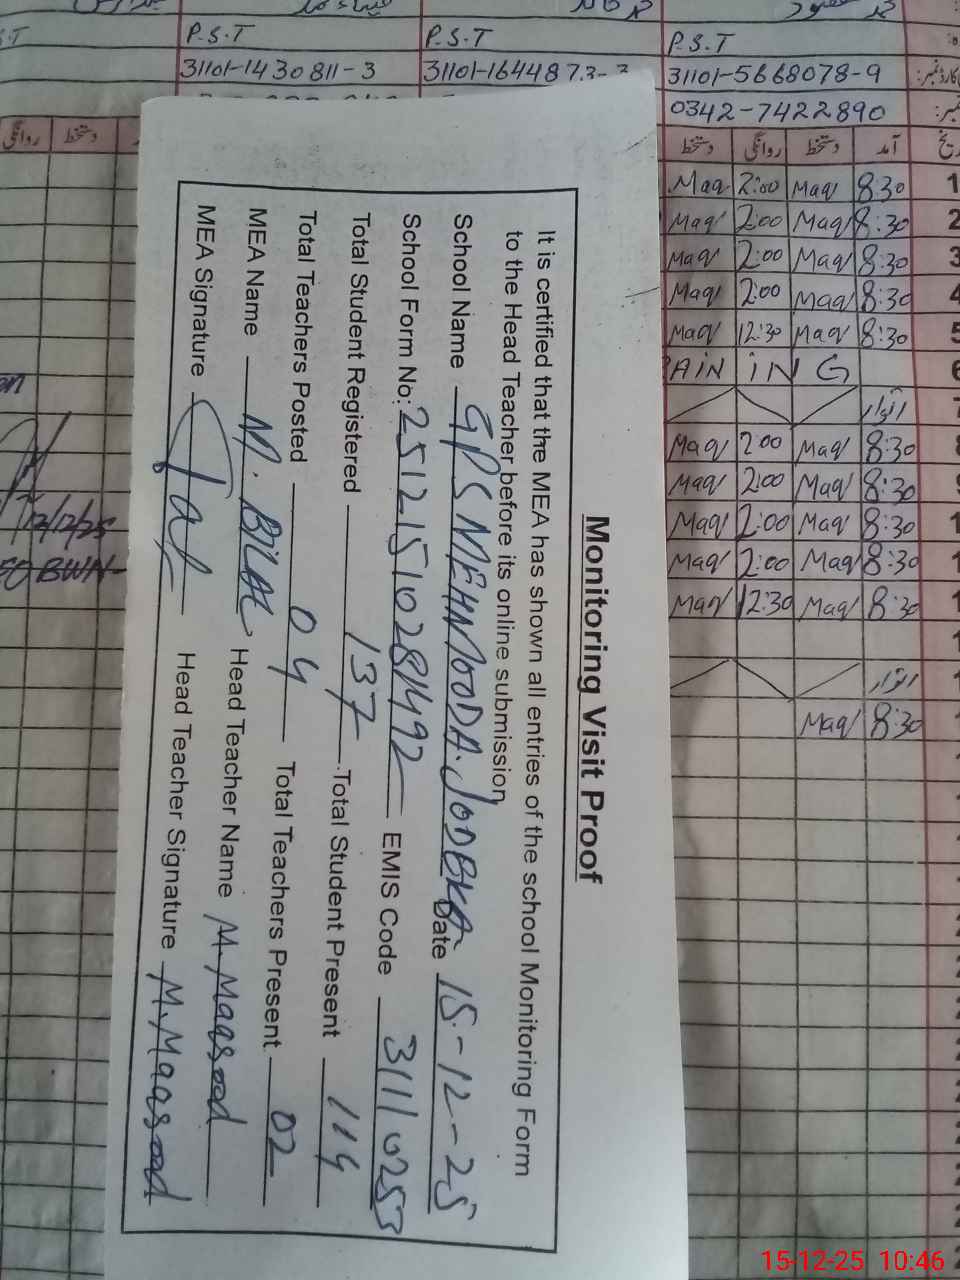 P.S.T P.S.T P.S.T
31101-1430811-3 31101-1644873-3 31101-5668078-9
0342-7422890
روانگی دستخط دستخط روانگی دستخط آمد
Maq 2:00 Maq 8:30 1
Maq 2:00 Maq 8:30 2
Maq 2:00 Maq 8:30 3
Maq 2:00 Maq 8:30 4
Maq 12:30 Maq 8:30 5
AINING 6
اتوار
Maq 2:00 Maq 8:30
Maq 2:00 Maq 8:30
Maq 2:00 Maq 8:30
Maq 2:00 Maq 8:30
Maq 12:30 Maq 8:30
اتوار
Maq 8:30
12/12/25
BWN
Monitoring Visit Proof
It is certified that the MEA has shown all entries of the school Monitoring Form
to the Head Teacher before its online submission
School Name GPS MEHMOODA. JODEKA Date 15-12-25
School Form No: 25121510281492 EMIS Code 31110253
Total Student Registered 137 Total Student Present 114
Total Teachers Posted 04 Total Teachers Present 02
MEA Name M. BILAL Head Teacher Name M. Maqsood
MEA Signature Head Teacher Signature M. Maqsood
15-12-25 10:46